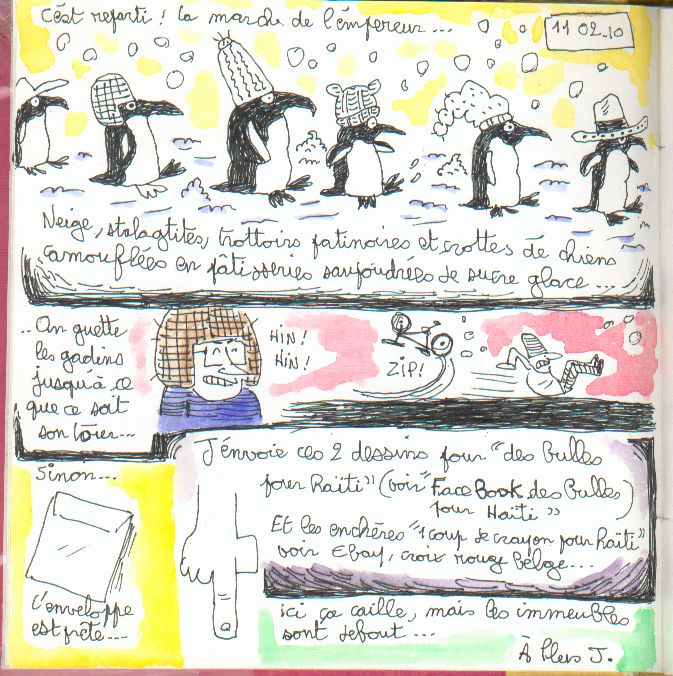 c'est reparti ! La marche de l'empereur...
11 02_10
Neige, stalagtites, trottoirs patinoires et crottes de chiens
camouflées en pâtisseries saupoudrées de sucre glace...
.. On guette
les gadins
jusqu'à ce
que ce soit
son tour...
HIN !
HIN !
ZIP !
J'envoie ces 2 dessins pour "des bulles
pour Haïti" (voir "FaceBook des Bulles)
pour Haïti "
Et les enchères "1 coup de crayon pour Haïti"
voir Ebay, croix rouge belge...
Sinon...
L'enveloppe
est prête...
ici ça caille, mais les immeubles
sont debout...
À Plus J.